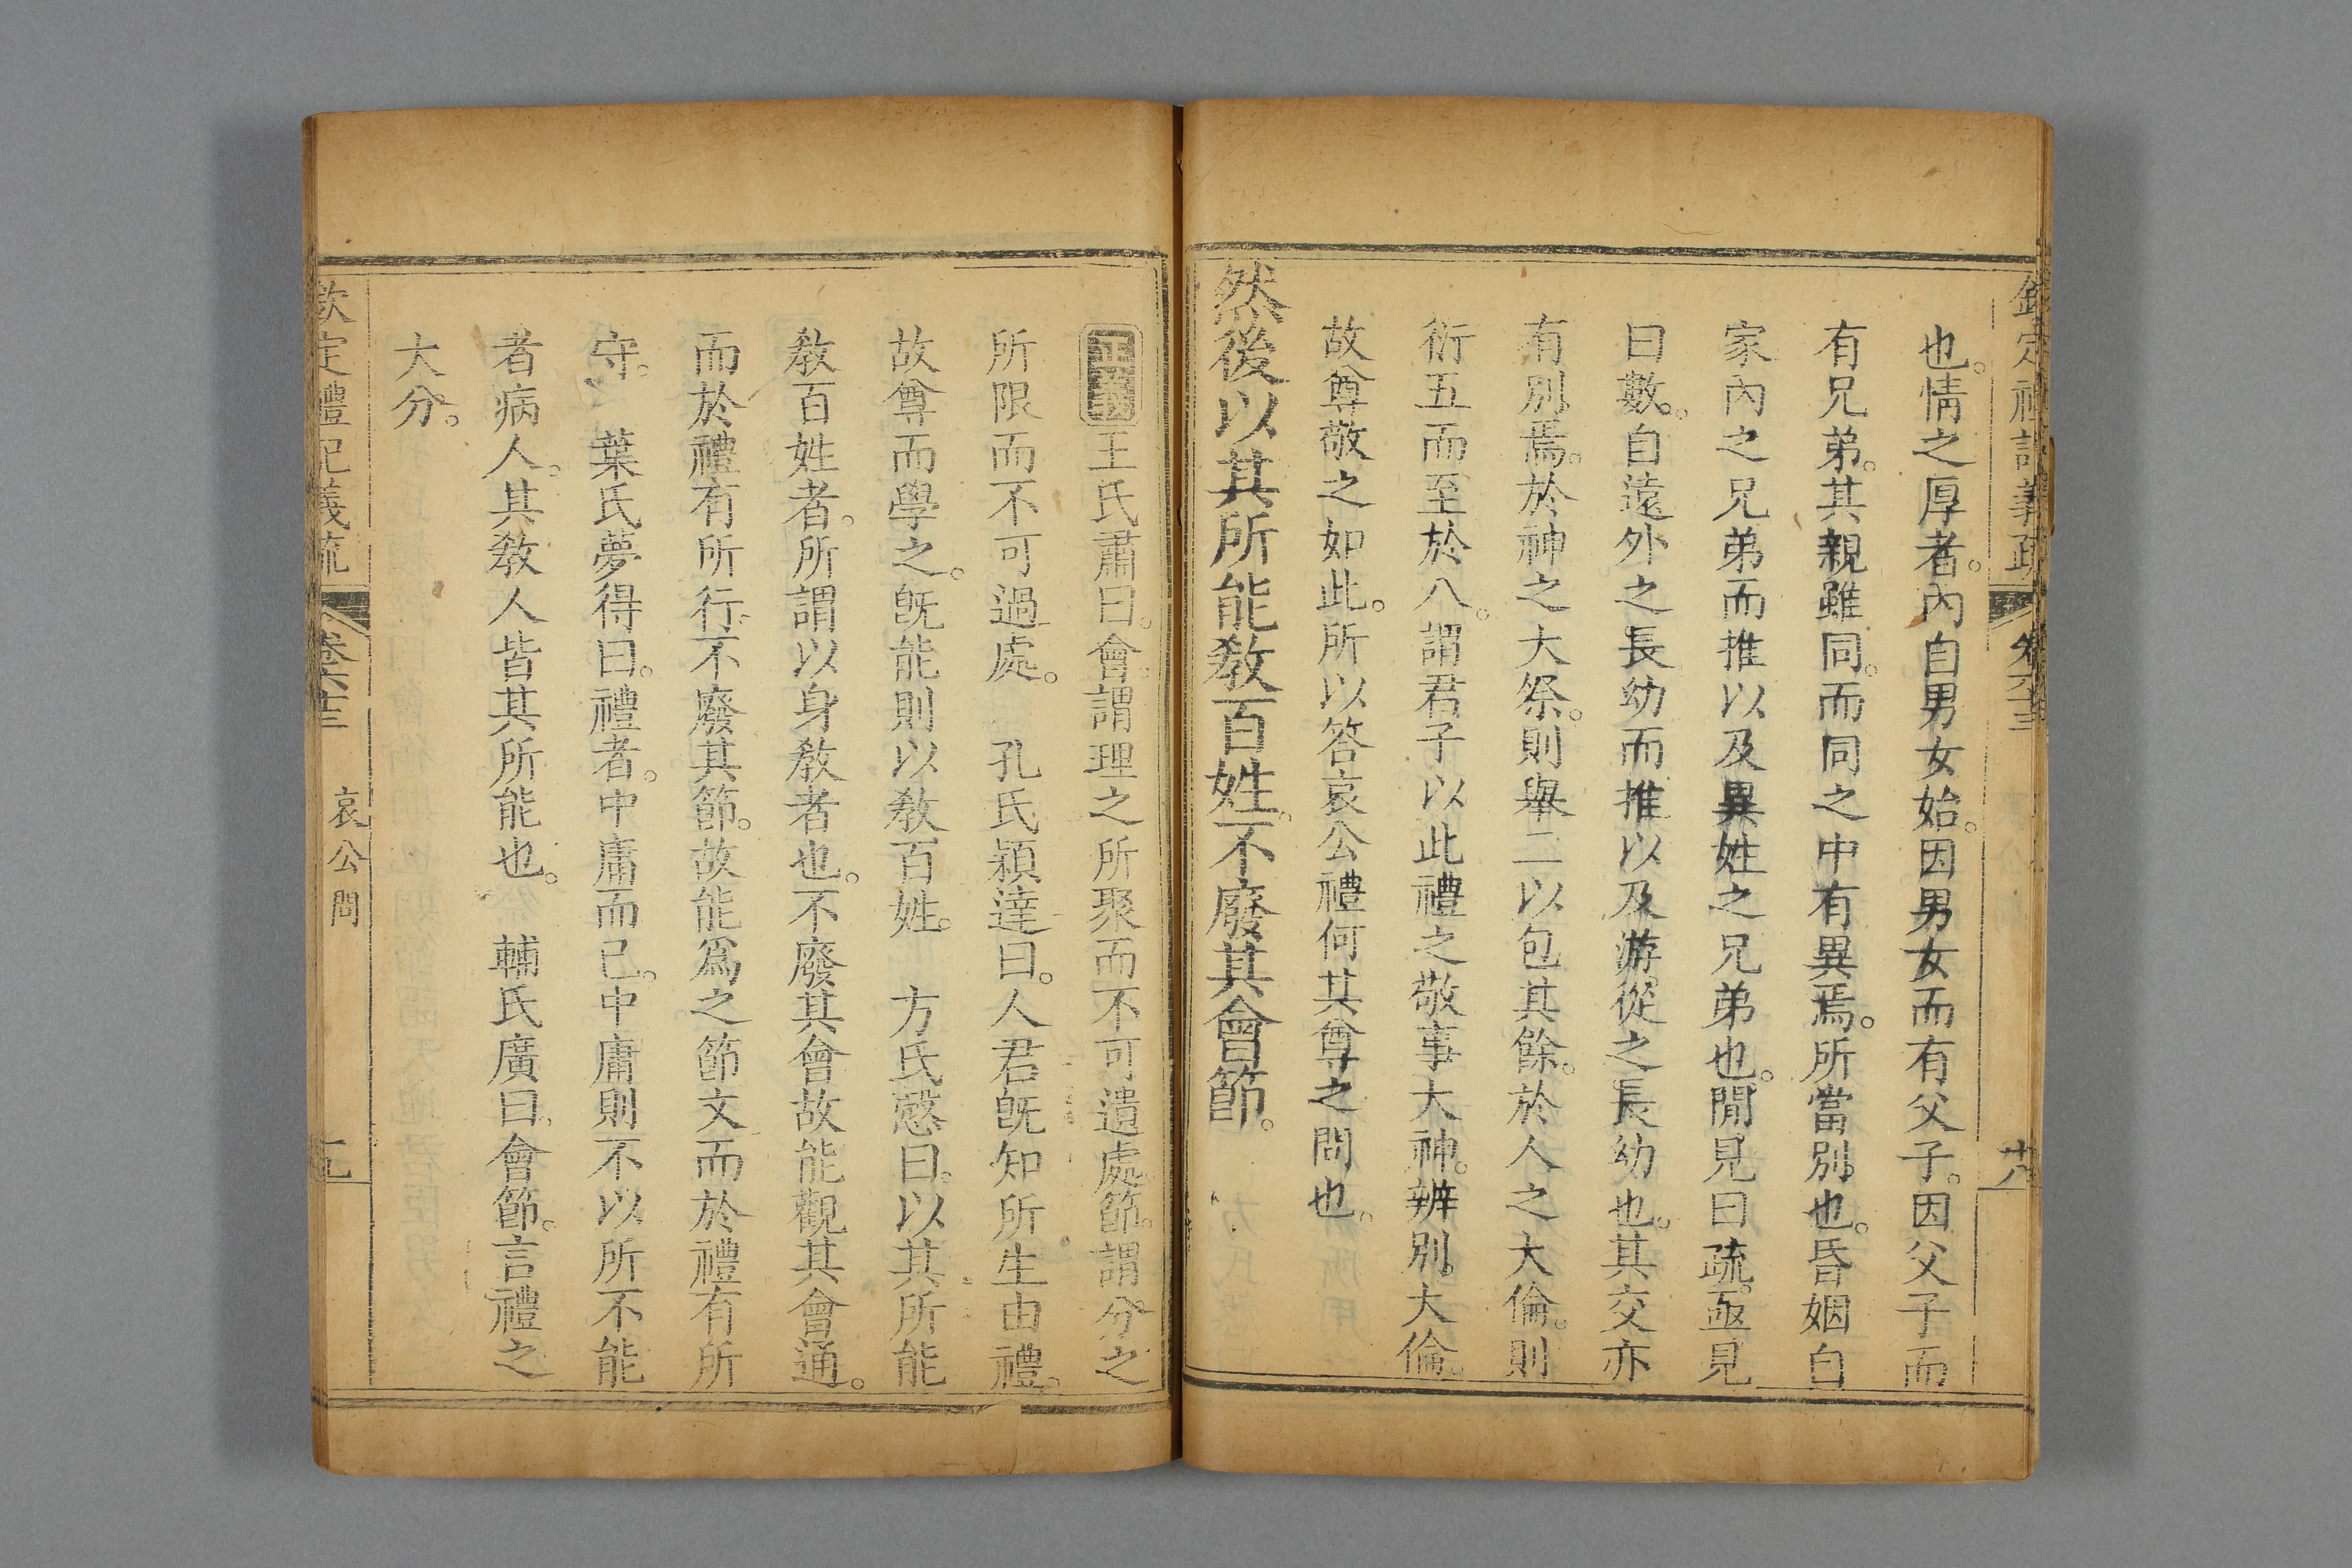 欽定禮記義疏 卷六十三 十八
也。情之厚者。內自男女始。因男女而有父子。因父子而
有兄弟。其親雖同。而同之中有異焉。所當別也。昏姻自
家內之兄弟而推以及異姓之兄弟也。閒見曰疏。亟見
曰數。自遠外之長幼而推以及游從之長幼也。其交亦
有別焉。於神之大祭。則舉二以包其餘。於人之大倫。則
衍五而至於八。謂君子以此禮之敬事大神。辨別大倫。
故尊敬之如此。所以答哀公禮何其尊之問也。
然後以其所能敎百姓。不廢其會節。
正義王氏肅曰。會謂理之所聚而不可遺處。節謂分之
所限而不可過處。 孔氏穎達曰。人君旣知所生由禮。
故尊而學之。旣能則以敎百姓。 方氏慤曰。以其所能
敎百姓者。所謂以身敎者也。不廢其會故能觀其會通。
而於禮有所行。不廢其節。故能爲之節文而於禮有所
守。 葉氏夢得曰。禮者。中庸而已。中庸則不以所不能
者病人。其敎人皆其所能也。 輔氏廣曰。會節。言禮之
大分。
欽定禮記義疏 卷六十三 哀公問 十九